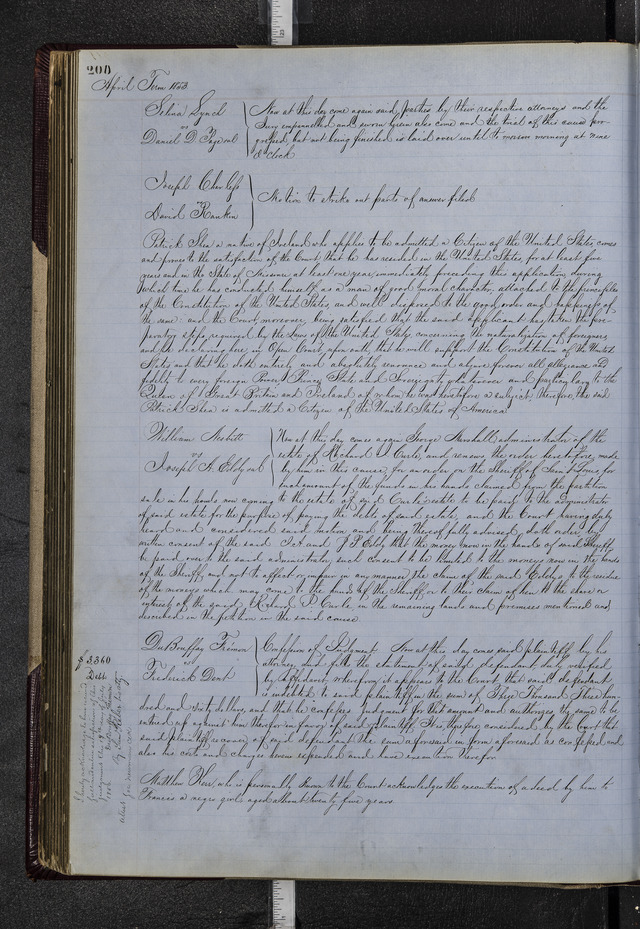 200
April Term 1853
Selina Lynch
vs
Daniel D. Page et al
Now at this day come again said parties by their respective attorneys and the
Jury empannelled and sworn herein also come and the trial of this cause pro-
gressed, but not being finished is laid over until to morrow morning at nine
O'clock
Joseph Charless
vs
David Rankin
Motion to strike out parts of answer filed
Patrick Shea a native of Ireland who applies to be admitted a Citizen of the United States, comes
and proves to the satisfaction of the Court that he has resided in the United States for at least five
years and in the State of Missouri at least one year, immediately preceding this application, during
which time he has conducted himself as a man of good moral character, attached to the principles
of the Constitution of the United States, and well disposed to the good order and happiness of
the same: and the Court moreover, being satisfied that the said applicant has taken the pre
paratory steps, required by the Laws of the United States concerning the naturalization of foreigners
and he declaring here in Open Court, upon oath, that he will support the Constitution of the United
States and that he doth entirely and absolutely renounce and abjure forever all allegiance and
fidelity to every foreign Power, Prince, State and Sovereignty whatsoever and particularly to the
Queen of Great Britain and Ireland of whom he was heretofore a subject, therefore the said
Patrick Shea is admitted a Citizen of the United States of America
William Nesbitt
vs
Joseph A. Eddy et al
Now at this day comes again George Marshall administrator of the
estate of Richard P. Curle, and renews the order heretofore, made
by him in this cause, for an order on the Sheriff of Saint Louis, for
such amount of the funds in his hands claimed from the partition
sale in his hands, now coming to the estate of said Curle's estate to be paid to the administrator
of said estate for the purposes of paying the debts of said estate, and the Court having duly
heard and considered said motion and being thereof fully advised, doth order by
with consent of the said J A and J P Eddy that the money now in the hands of said Sheriff
be paid over to the said administrator, such consent to be limited to the moneys now in the hands
of the Sheriff and not to affect or impair in any manner the claim of the said Eddys to the residue
of the moneys which may come to the hands of the Sheriff or to their claim of him to the share or
interest of the said Richard P. Curle in the remaining lands and premises mentioned and
described in the petition in the said cause
DuBouffay Tremon
vs
Frederick Dent
$3360
Debt
Confession of Judgment Now at this day comes said plaintiff by his
attorney and files the statement of said defendant duly verified
by affidavit wherefrom it appears to the Court that said defendant
is indebted to said plaintiff in the sum of Three Thousand Three hun-
dred and sixty dollars, and that he confesses judgment for that amount and authorizes the same to be
entered up against him therefor in favor of said plaintiff. It is therefore considered by the Court that
said plaintiff recover of said defendant the sum aforesaid in form aforesaid as confessed and
also his costs and charges herein expended and have execution therefor
Matthew Kerr, who is personally known to the Court acknowledges the execution of a deed by him to
Frances a negro girl aged about twenty five years.